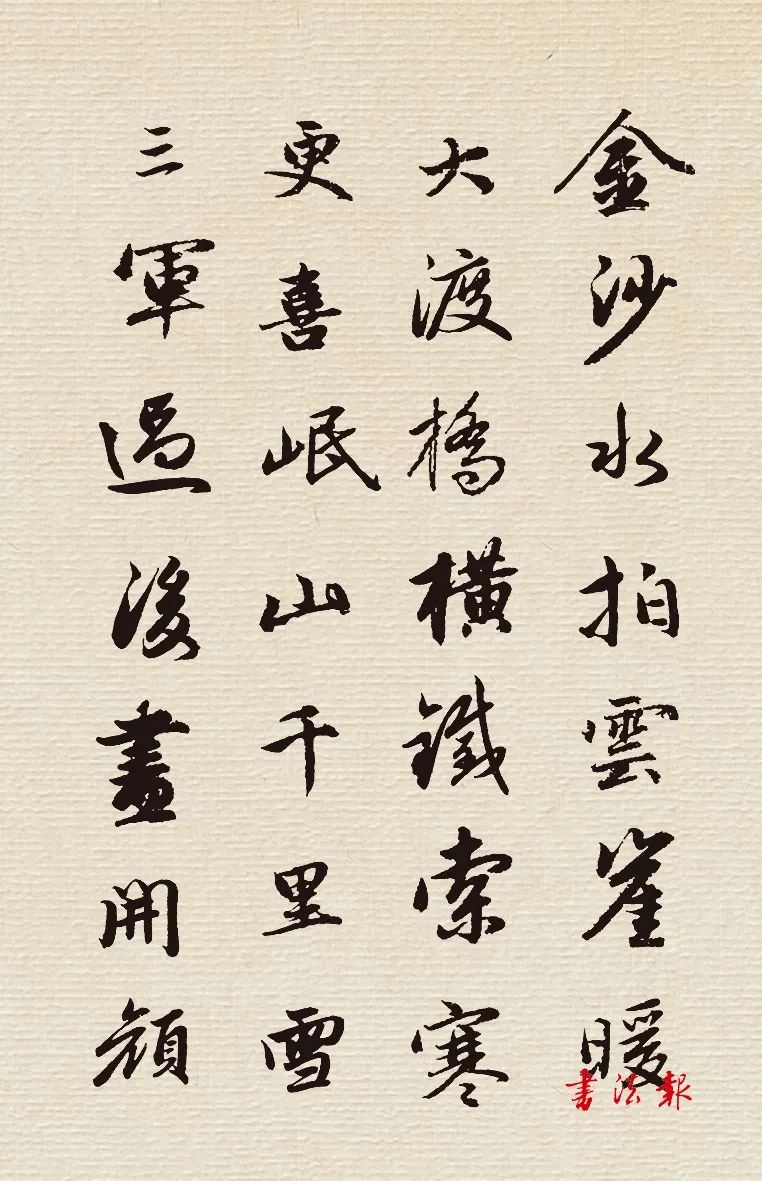 金沙水拍雲崖暖
大渡橋橫鐵索寒
更喜岷山千里雪
三軍過後盡開顏
書法報